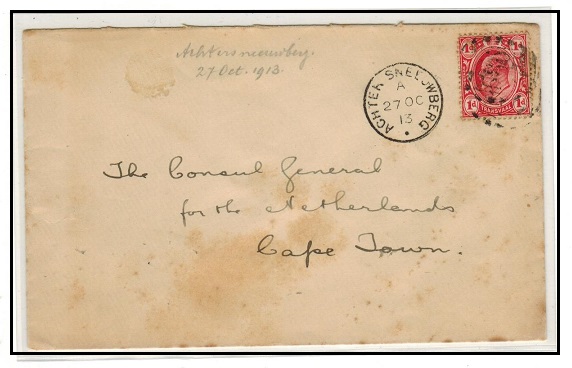 Achtersneeuwberg.
27 Oct. 1913.
ACHTER SNEEUWBERG
A
27 OC
13
1d 1d
TRANSVAAL
1d 1d
The Consul General
for the Netherlands
Cape Town.